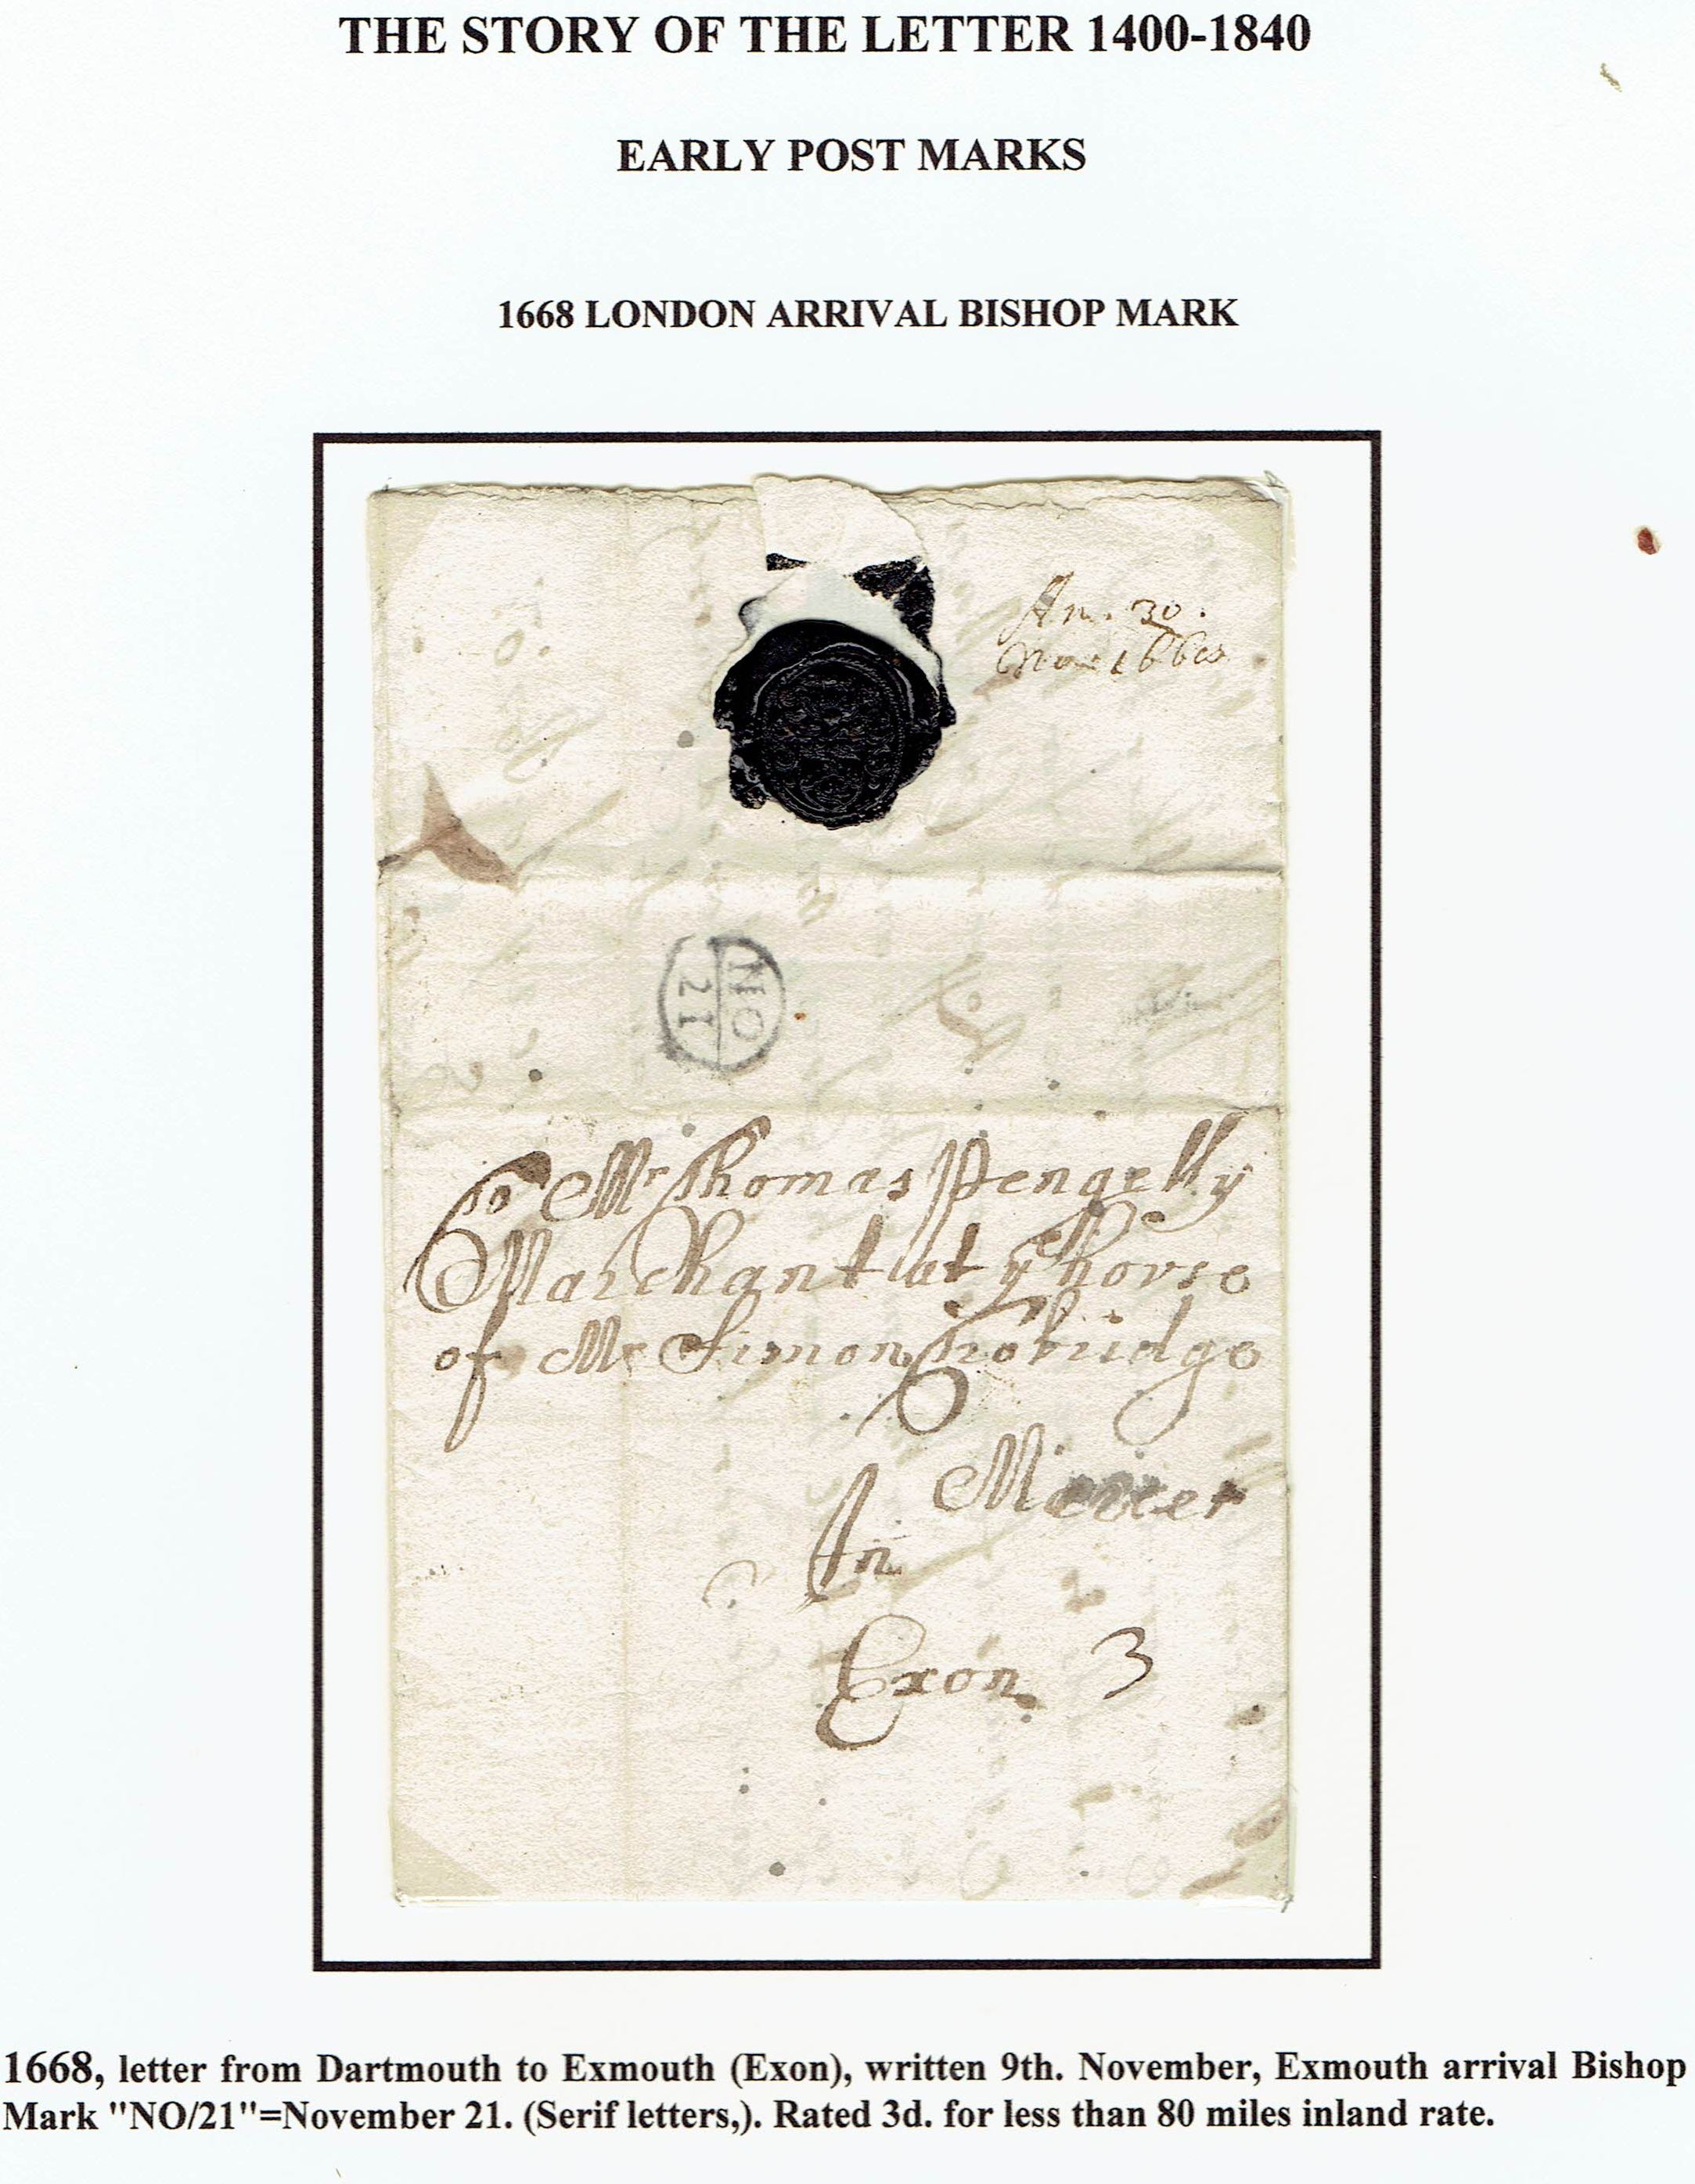 THE STORY OF THE LETTER 1400-1840
EARLY POST MARKS
1668 LONDON ARRIVAL BISHOP MARK
30.
NO
21
To Mr Thomas Pengelly
Marchant at ye house
of Mr Simon
Mercer
In
Exon 3
1668, letter from Dartmouth to Exmouth (Exon), written 9th. November, Exmouth arrival Bishop
Mark "NO/21"=November 21. (Serif letters,). Rated 3d. for less than 80 miles inland rate.